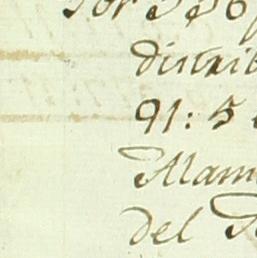 Por 336
distrib
91: 5
Mam
del